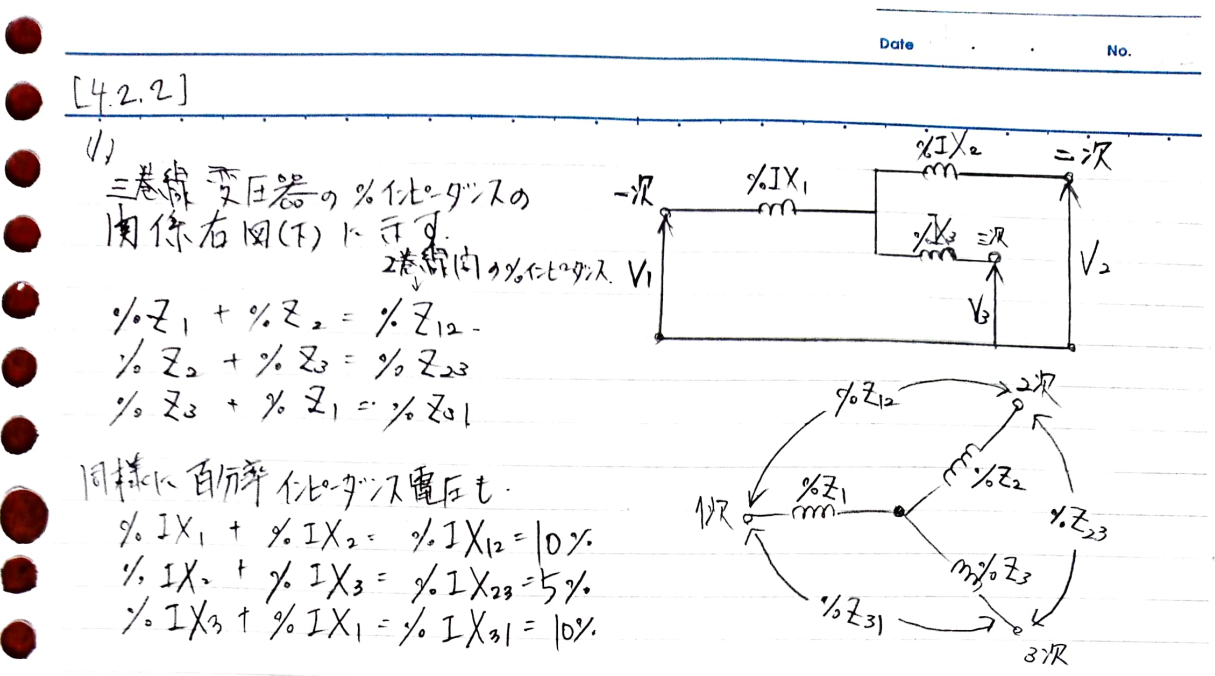 Date . . No.
[4.2.2]
(1)
三巻線変圧器の%インピーダンスの
関係右図(下)に示す.
2巻線間の%インピーダンス.
↓
%Z1 + %Z2 = %Z12
%Z2 + %Z3 = %Z23
%Z3 + %Z1 = %Z31
同様に百分率インピーダンス電圧も.
%IX1 + %IX2 = %IX12 = 10%
%IX2 + %IX3 = %IX23 = 5%
%IX3 + %IX1 = %IX31 = 10%
一次
%IX1
%IX2
二次
%IX3
三次
V1
V3
V2
%Z12
2次
%Z1
%Z2
1次
%Z23
%Z3
%Z31
3次